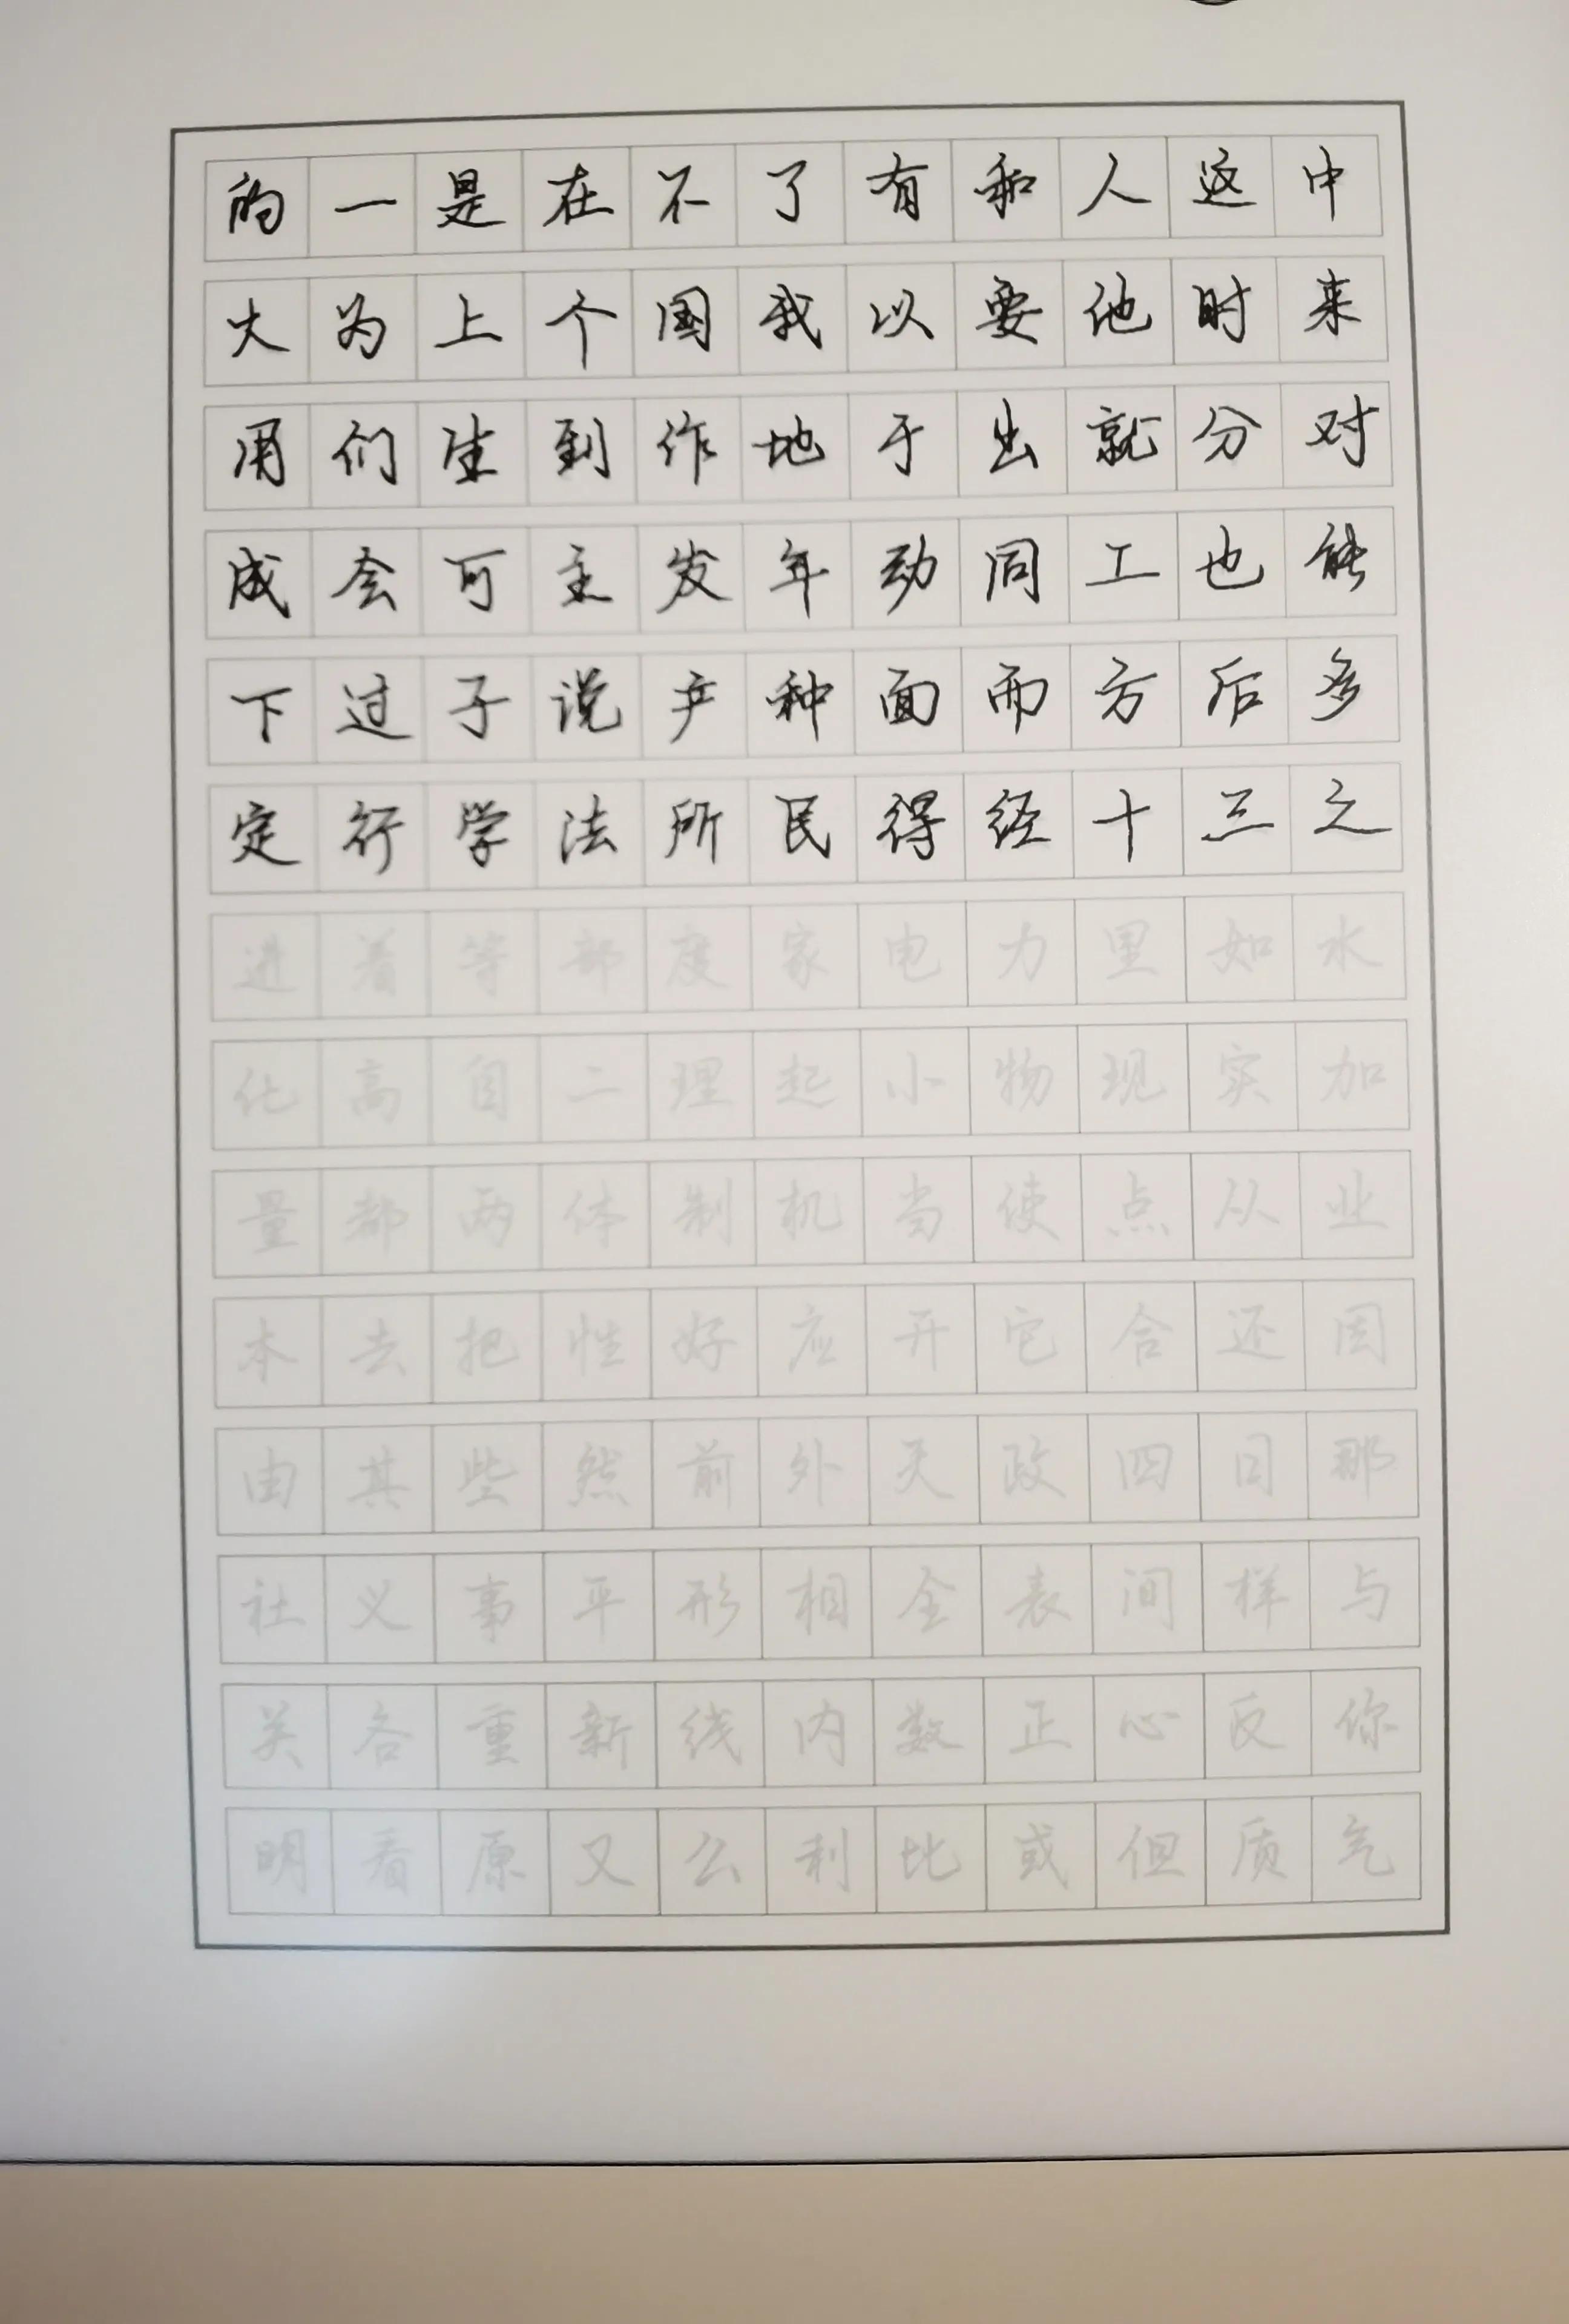 的一是在不了有和人这中
大为上个国我以要他时来
用们生到作地于出就分对
成会可主发年动同工也能
下过子说产种面而方后多
定行学法所民得经十三之
进着等部度家电力里如水
化高自二理起小物现实加
量都两体制机当使点从业
本去把性好应开它合还因
由其些然前外天政四日那
社义事平形相全表间样与
关各重新线内数正心反你
明看原又么利比或但质气